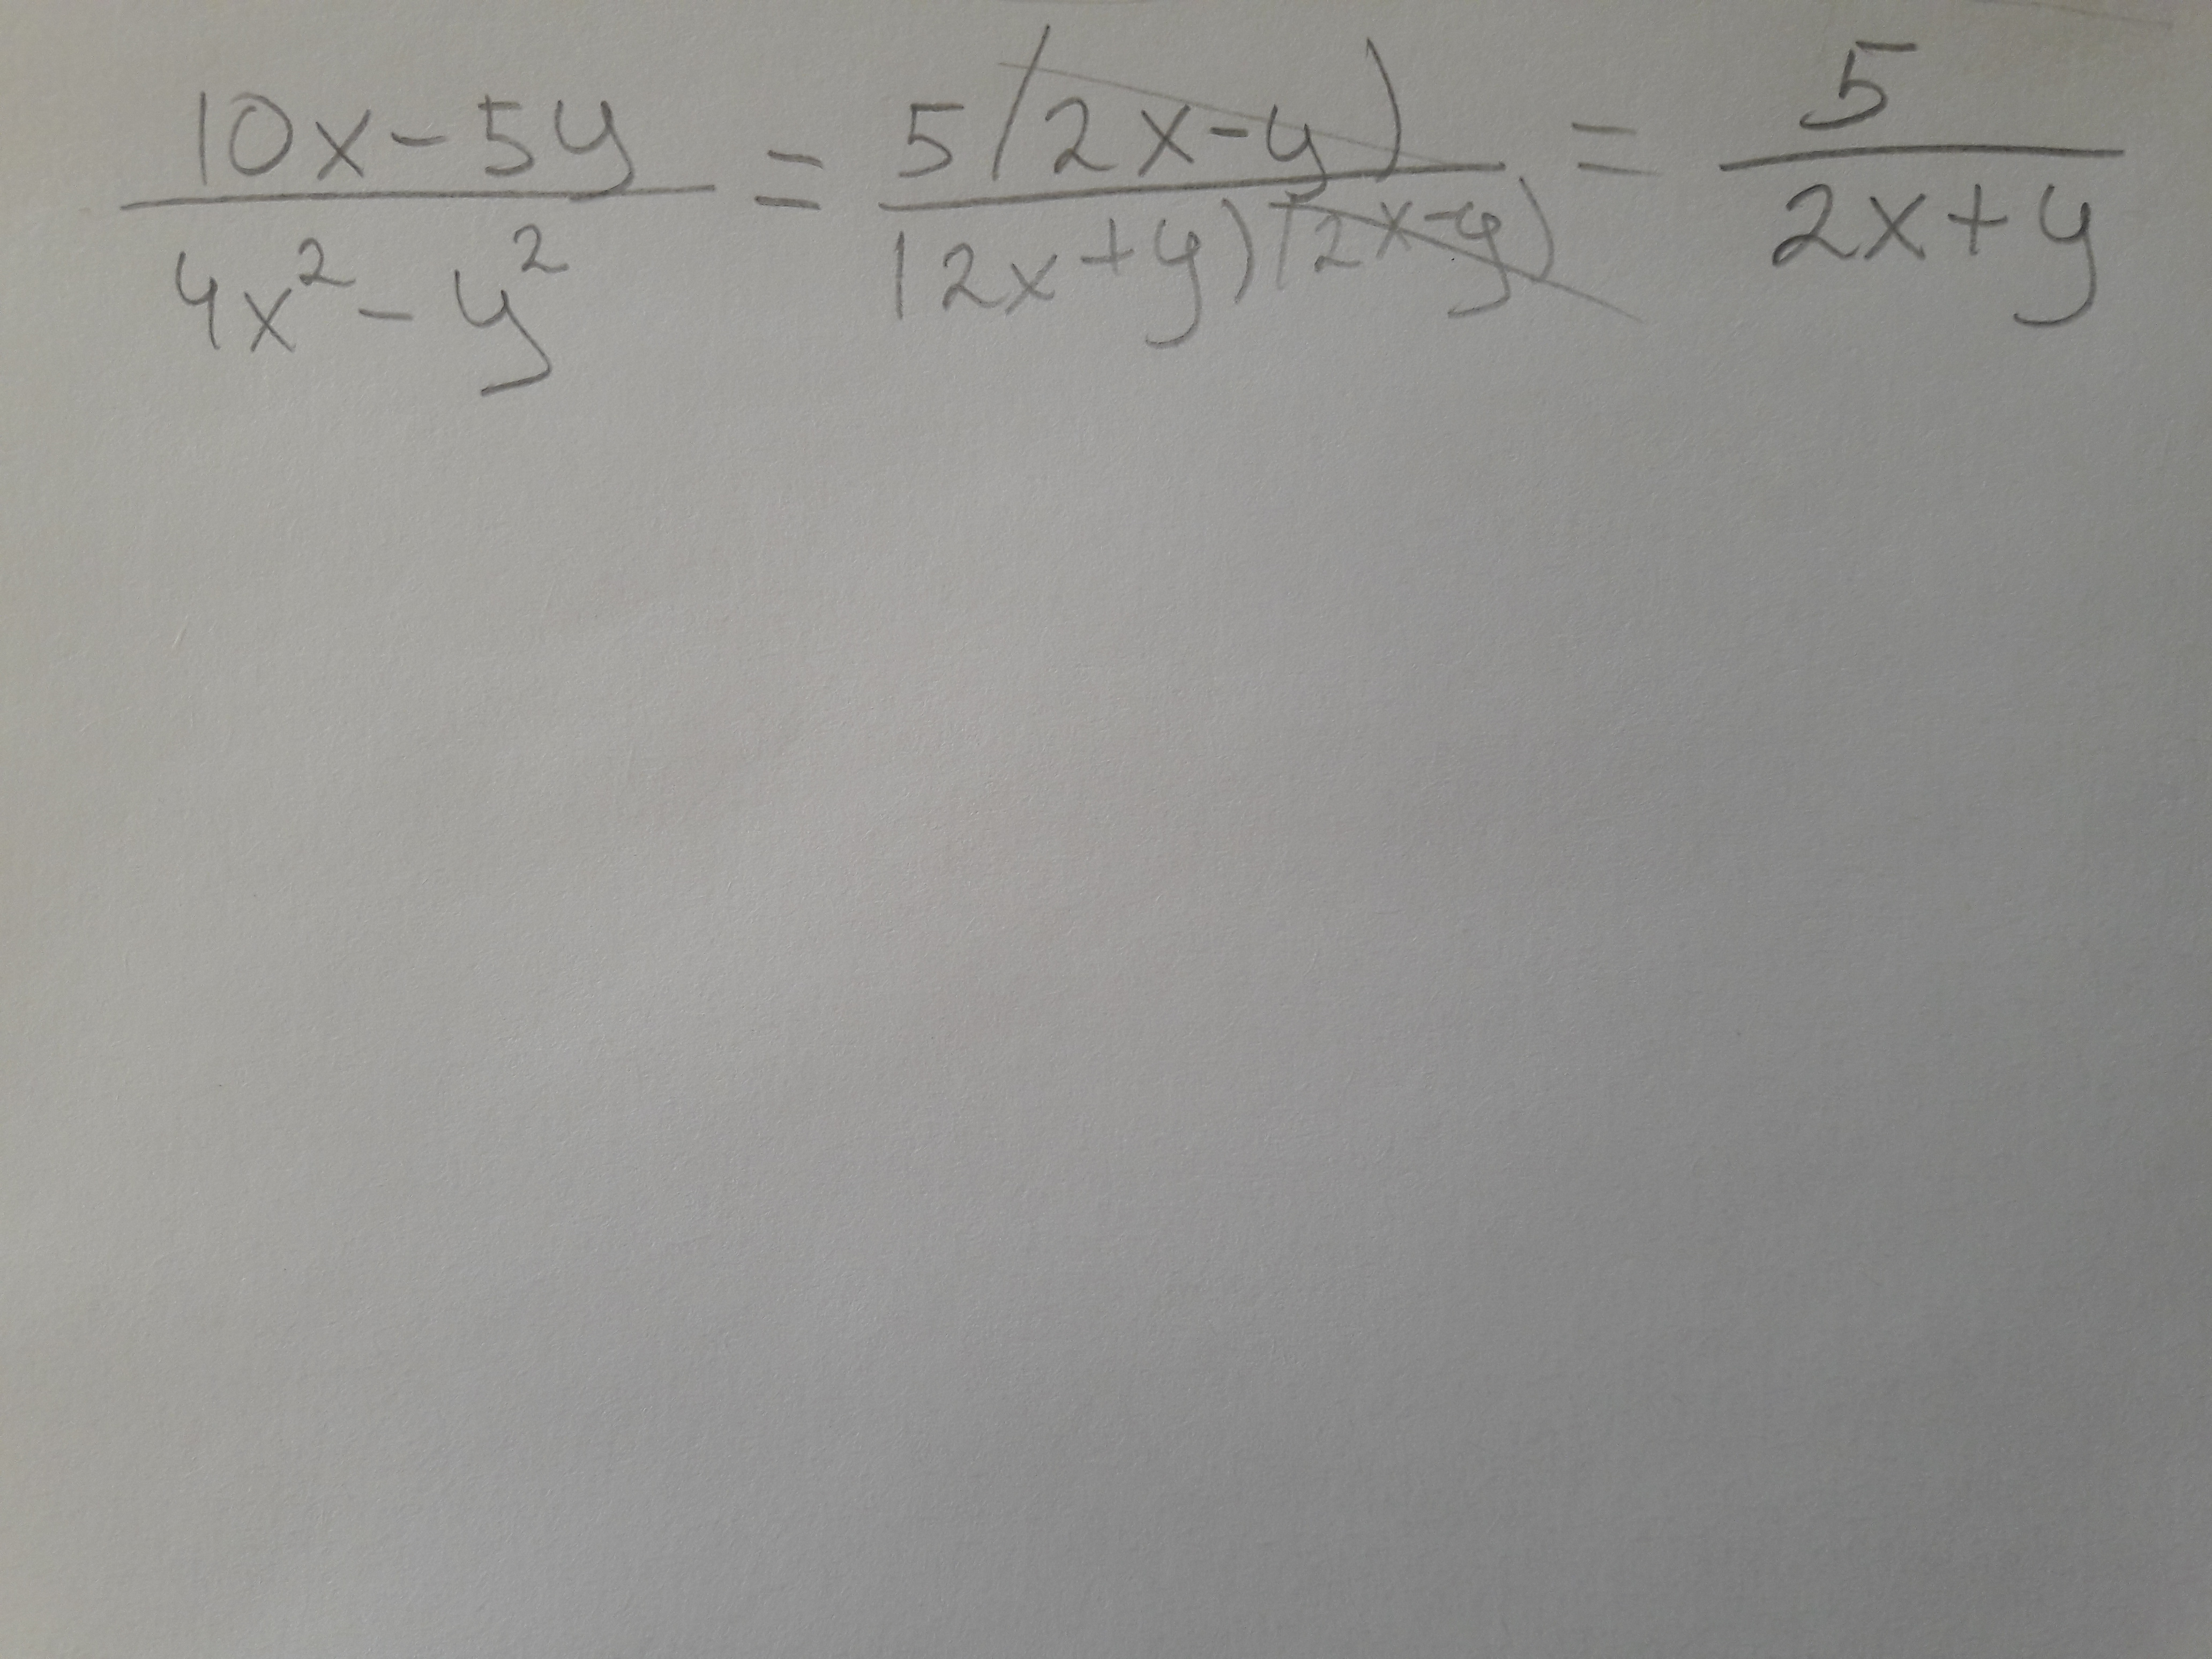 (10x-5y)/(4x²-y²) = 5(2x-y)/((2x+y)(2x-y)) = 5/(2x+y)